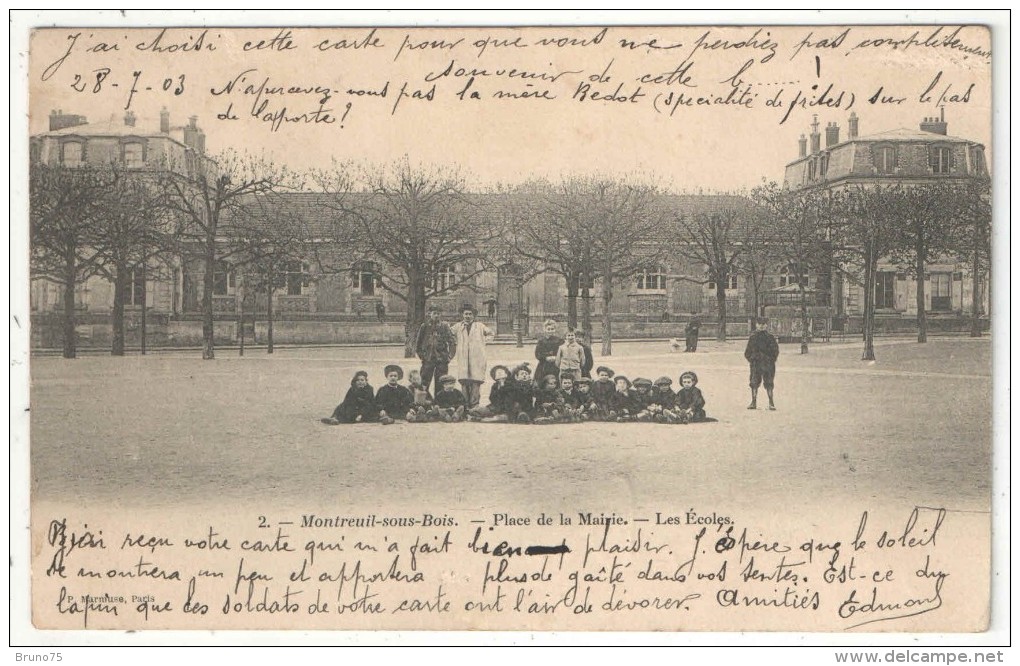 J'ai choisi cette carte pour que vous ne perdiez pas complètement
28-7-03 souvenir de cette b.......!
N'apercevez-vous pas la mère Bedot (spécialité de frites) sur le pas
de la porte?
2. — Montreuil-sous-Bois. — Place de la Mairie. — Les Écoles.
J'ai reçu votre carte qui m'a fait bien plaisir. J'espère que le soleil
se montrera un peu et apportera plus de gaîté dans vos sentes. Est-ce du
P. Marmuse, Paris
lapin que ces soldats de votre carte ont l'air de dévorer. Amitiés Edmond
Bruno75
http://www.delcampe.net